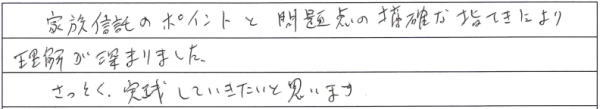 家族信託のポイントと問題点の的確な指てきにより
理解が深まりました。
さっそく、実践していきたいと思います